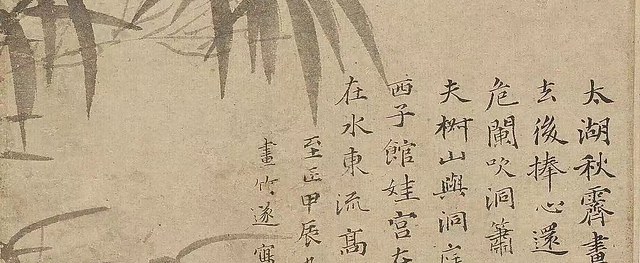 太湖秋霽畫
去後捧心還
危闌吹洞簫
夫椒山與洞庭
西子館娃宮在
在水東流高
至正甲辰
畫竹遂寫